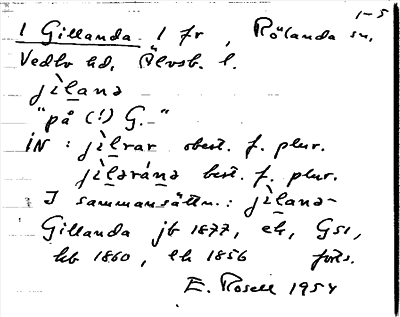 1-5
1 Gillanda 1 fr, Rölanda sn,
Vedbo hd, Älvsb. l.
jìlanə
"på (!) G."
iN : jìlrar obest. f. plur.
jìləránə best. f. plur.
I sammansättn.: jìlanə-
Gillanda jb 1877, ek, GS1,
kb 1860, lh 1856 forts.
E. Rosell 1954